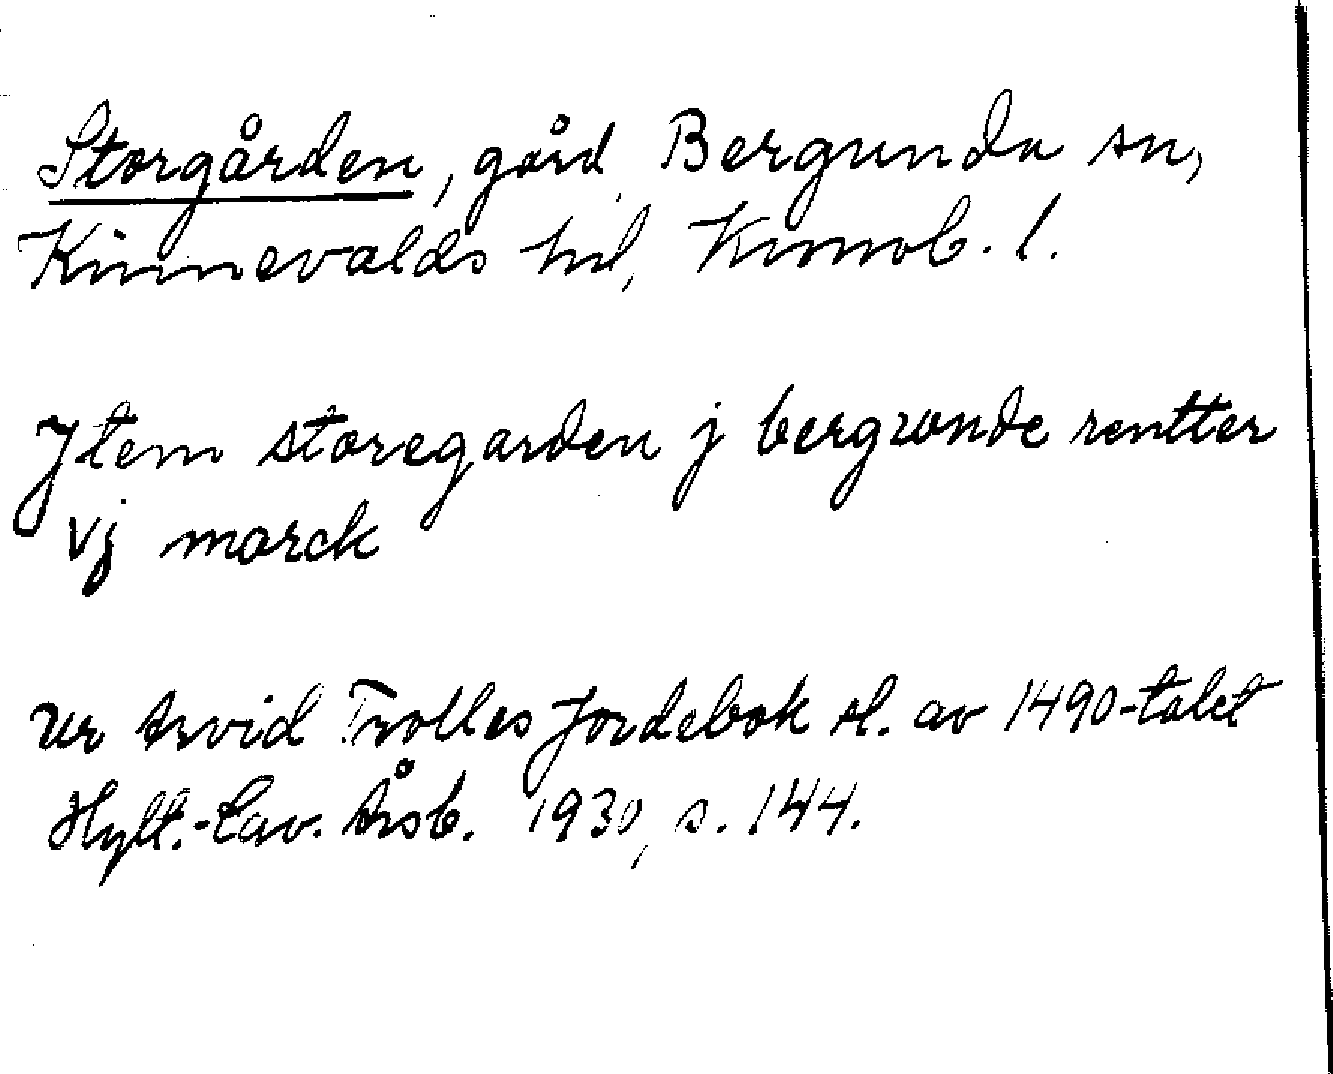 Storgården, gård, Bergunda sn,
Kinnevalds hd, Kronob. l.
Jtem storegarden j bergwnde rentter
vj marck
Ur Arvid Trolles jordebok sl. av 1490-talet
Hylt.-Cav. Årsb. 1930, s. 144.